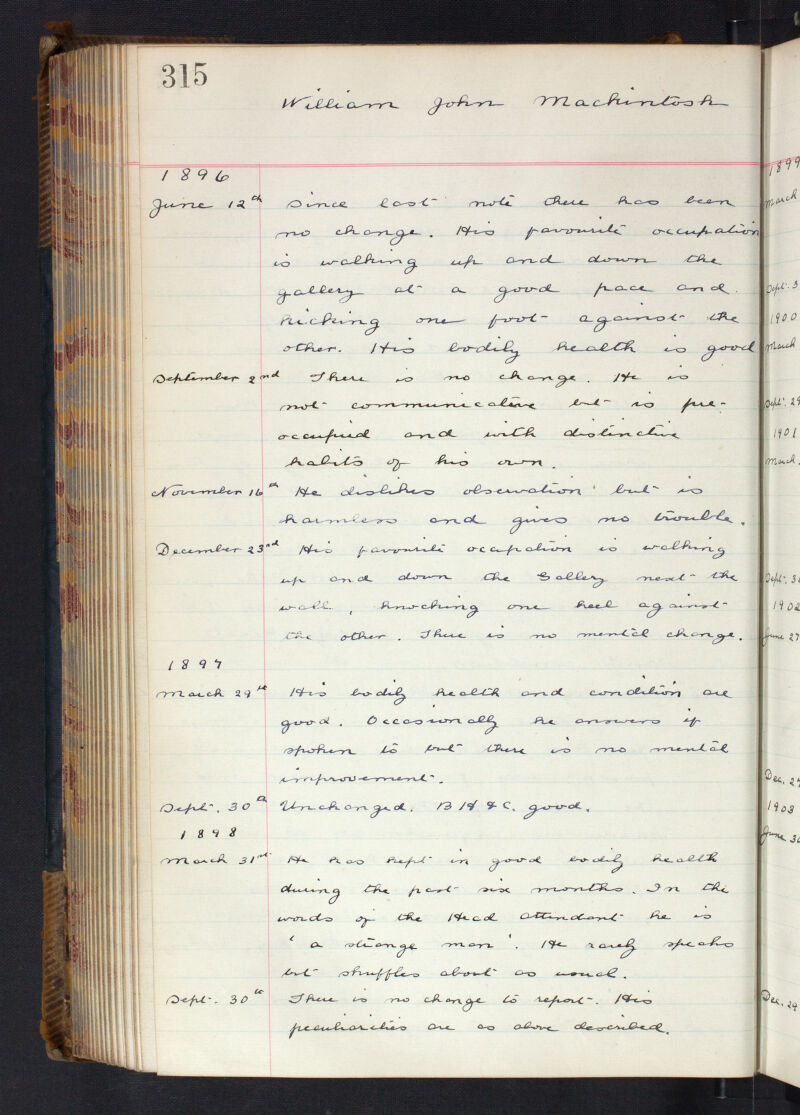 315
William John Mackintosh
1896
June 12th Since last note there has been
no change. His favourite occupation
is walking up and down the
gallery at a good pace and
kicking one foot against the
other. His bodily health is good
September 2nd There is no change. He is
not communicative but is pre-
occupied and with distinctive
habits of his own.
November 16th He dislikes observation but is
harmless and gives no trouble.
December 23rd His favourite occupation is walking
up and down the Gallery next the
wall, knocking one heel against
the other. There is no mental change.
1897
March 29th His bodily health and condition are
good. Occasionally he answers if
spoken to but there is no mental
improvement.
Sept. 30th Unchanged. B H & C. good.
1898
March 31st He has kept in good bodily health
during the past six months. In the
words of the Head attendant he is
'a strange man'. He rarely speaks
but shuffles about as usual.
Sept. 30th There is no change to report. His
peculiarities are as above described.
1899
March
Sept. 3
1900
March
Sept. 29
1901
March.
Sept. 30
1902
June 27
Dec. 27
1903
June 30
Dec. 29